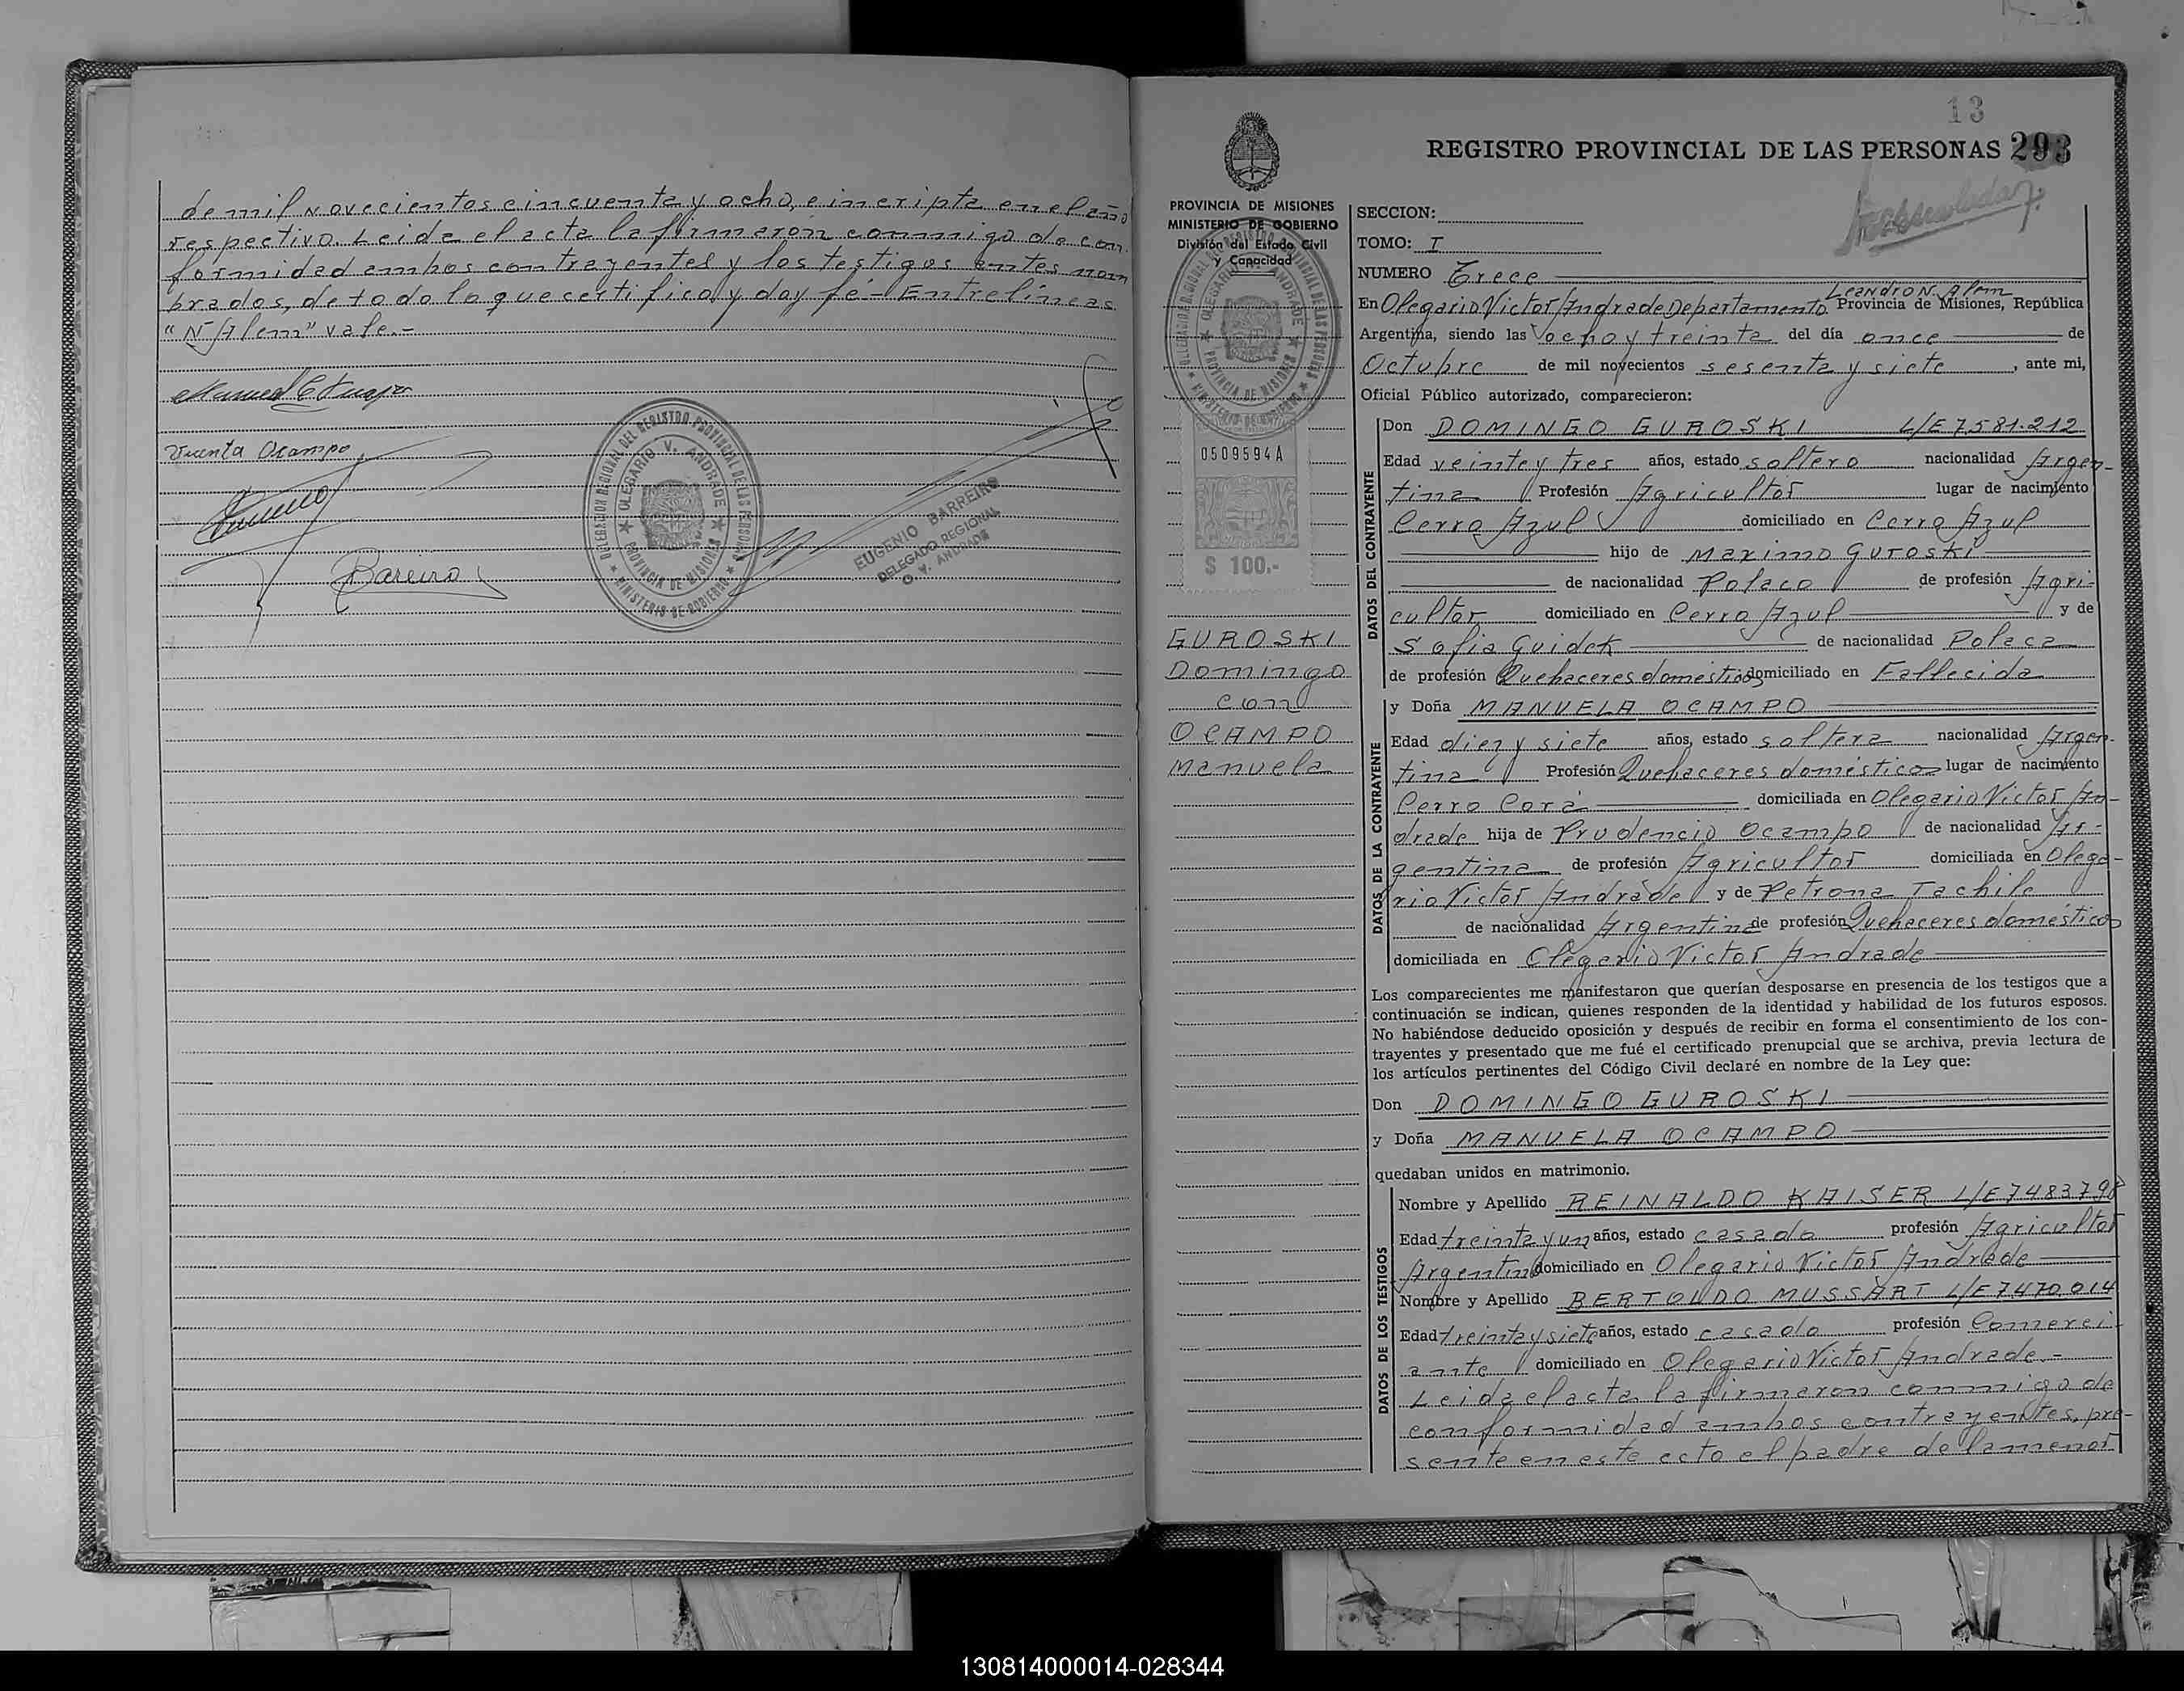 de mil novecientos cincuenta y ocho, e inscripta en el año
respectivo. Leida el acta la firmaron conmmigo de con
formidad ambos contrayentes y los testigos antes nom
brados, de todo lo que certifico y doy fé.- Entrelíneas
"N Alem" vale.-
Vicenta Ocampo
Bareiro
DELEGACION REGIONAL DEL REGISTRO PROVINCIAL DE LAS PERSONAS
OLEGARIO V. ANDRADE
PROVINCIA DE MISIONES
MINISTERIO DE GOBIERNO
EUGENIO BARREIRO
DELEGADO REGIONAL
O. V. ANDRADE
13
REGISTRO PROVINCIAL DE LAS PERSONAS 293
PROVINCIA DE MISIONES
MINISTERIO DE GOBIERNO
División del Estado Civil
y Capacidad
0509594A
$ 100.-
GUROSKI
Domingo
con
OCAMPO
Manuela
SECCION:
TOMO: I
NUMERO Trece
Leandro N. Alem
En Olegario Victor Andrade Departamento Provincia de Misiones, República
Argentina, siendo las ocho y treinta del día once de
Octubre de mil novecientos sesenta y siete, ante mi,
Oficial Público autorizado, comparecieron:
DATOS DEL CONTRAYENTE
Don DOMINGO GUROSKI L/E 7.581.212
Edad veinte y tres años, estado soltero nacionalidad Argen-
tina Profesión Agricultor lugar de nacimiento
Cerro Azul domiciliado en Cerro Azul
hijo de Maximo Guroski
de nacionalidad Polaco de profesión Agri-
cultor domiciliado en Cerro Azul y de
Sofia Guidek de nacionalidad Polaca
de profesión Quehaceres domésticos domiciliado en Fallecida
DATOS DE LA CONTRAYENTE
y Doña MANUELA OCAMPO
Edad diez y siete años, estado soltera nacionalidad Argen-
tina Profesión Quehaceres domésticos lugar de nacimiento
Cerro Corá domiciliada en Olegario Victor An-
drade hija de Prudencio Ocampo de nacionalidad Ar-
gentina de profesión Agricultor domiciliada en Olega-
rio Victor Andrade y de Petrona Tachile
de nacionalidad Argentina de profesión Quehaceres domésticos
domiciliada en Olegario Victor Andrade
Los comparecientes me manifestaron que querían desposarse en presencia de los testigos que a
continuación se indican, quienes responden de la identidad y habilidad de los futuros esposos.
No habiéndose deducido oposición y después de recibir en forma el consentimiento de los con-
trayentes y presentado que me fué el certificado prenupcial que se archiva, previa lectura de
los artículos pertinentes del Código Civil declaré en nombre de la Ley que:
Don DOMINGO GUROSKI
y Doña MANUELA OCAMPO
quedaban unidos en matrimonio.
DATOS DE LOS TESTIGOS
Nombre y Apellido REINALDO KAISER L/E 7483798
Edad treinta y un años, estado casado profesión Agricultor
Argentino domiciliado en Olegario Victor Andrade
Nombre y Apellido BERTOLDO MUSSART L/E 7.470.014
Edad treinta y siete años, estado casado profesión Comerci-
ante domiciliado en Olegario Victor Andrade.-
Leida el acta la firmaron conmmigo de
conformidad ambos contrayentes, pre-
sente en este acto el padre de la menor
130814000014-028344